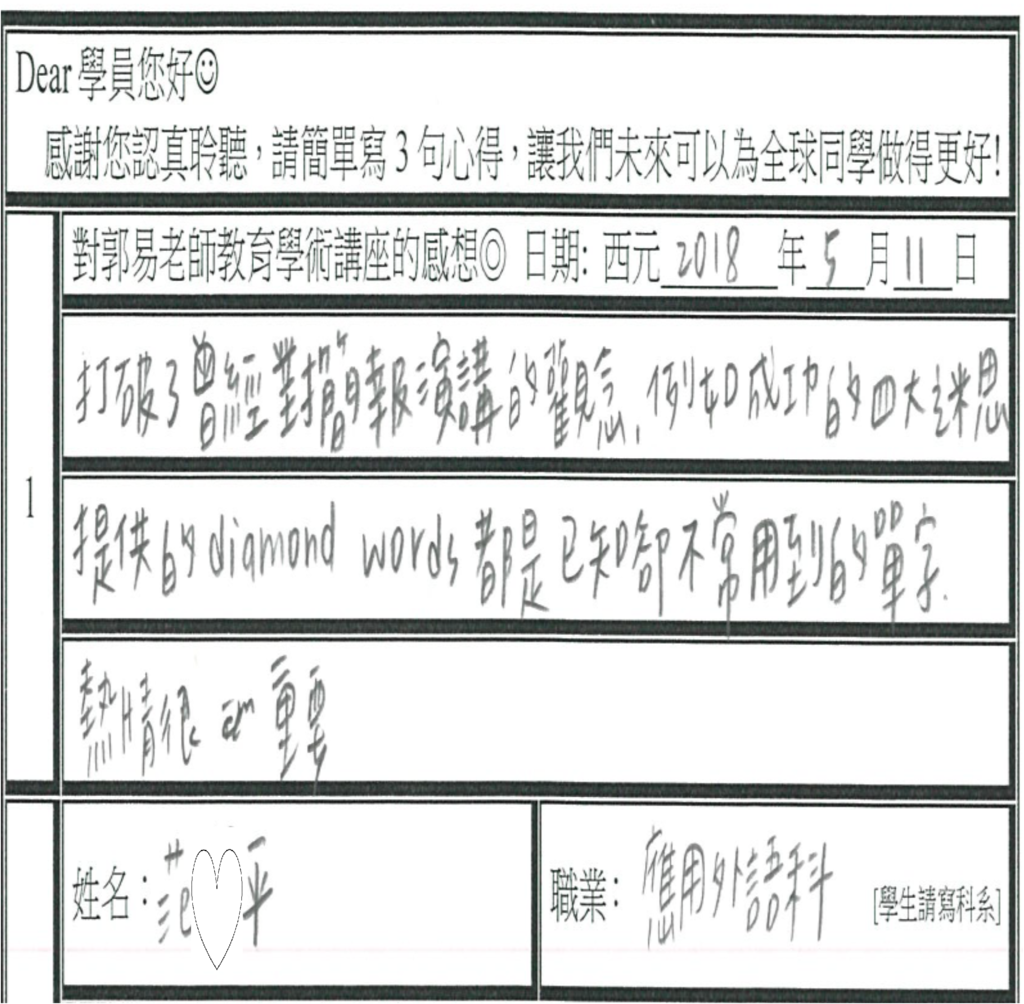 Dear 學員您好☺
感謝您認真聆聽，請簡單寫 3 句心得，讓我們未來可以為全球同學做得更好!
對郭易老師教育學術講座的感想◎ 日期: 西元 2018 年 5 月 11 日
打破了曾經對簡報演講的觀念，例如成功的四大迷思
1
提供的 diamond words 都是已知卻不常用到的單字.
熱情很 重要
姓名：范 平
職業： 應用外語科 [學生請寫科系]